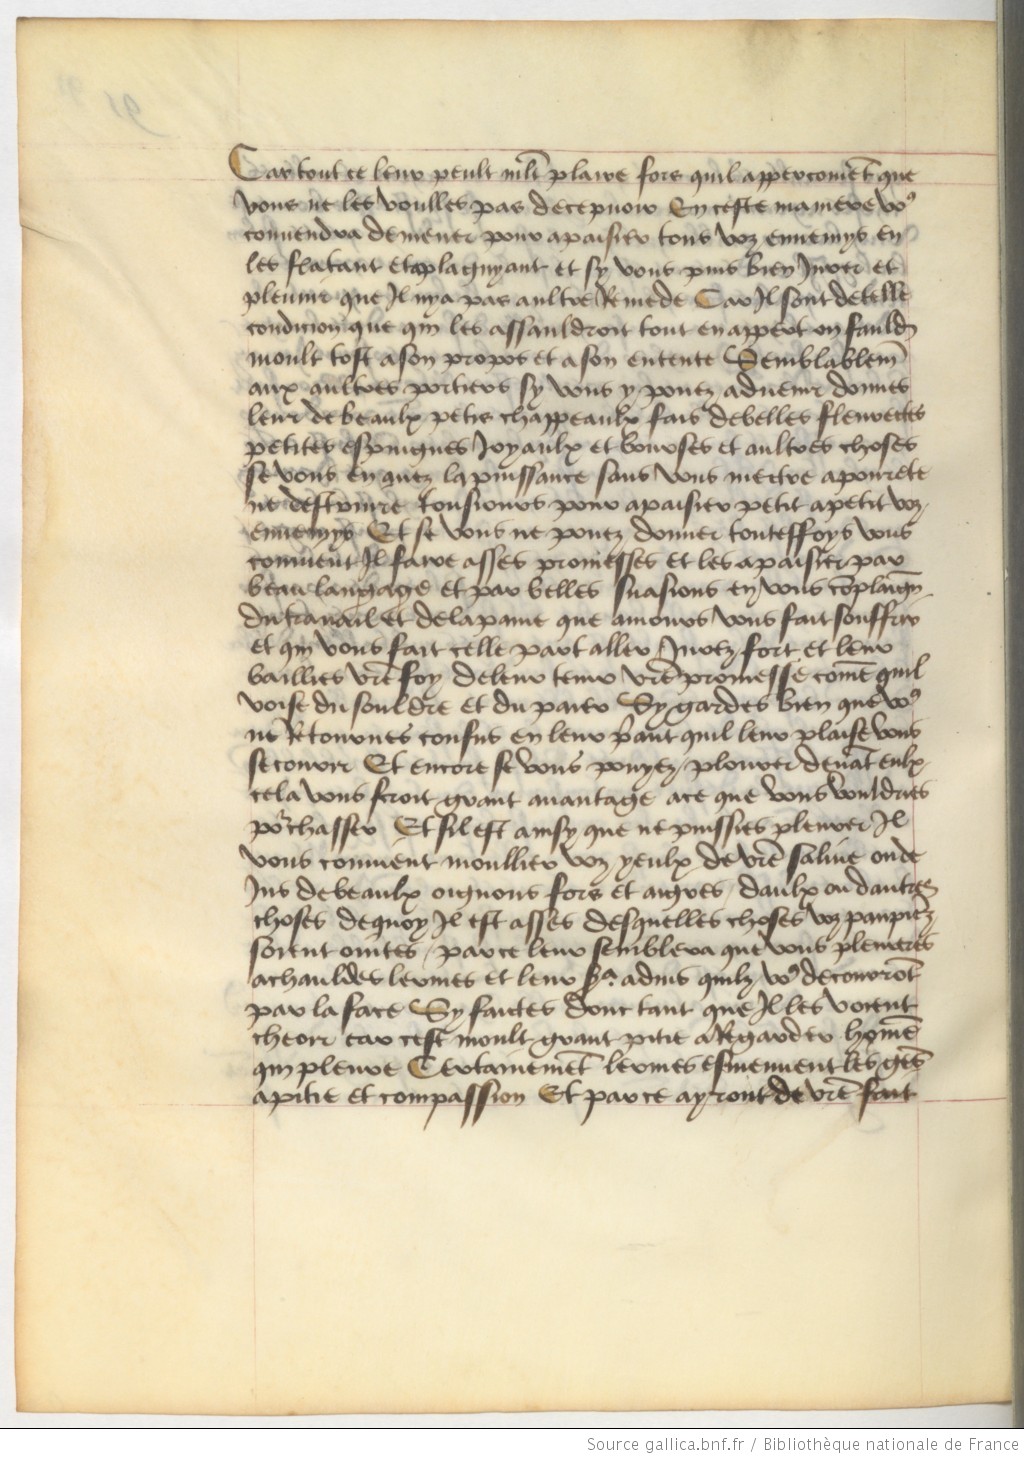 Car tout ce leur peult mlt plaire fors quil appercoiuēt que
vous ne les voulles pas decepuoir En ceste maniere voꝰ
conuendra demener pour apaisier tous voz ennemys en
les flatant et aplaguyant et sy vous puis bien Jurer et
pleuuir que Il nya pas aultre Remede Car Il sont de telle
condicion que qui les assauldroit tout en appert on fauldr̄
moult tost a son propos et a son entente Semblablem̄
aux aultres portiers sy vous y pouez aduenir donnes
leur de beaulx petis chappeaulx fais de belles fleurettes
petites espingues Joyaulx et bourses et aultres choses
se vous en auez la puissance sans vous mectre a pourete
ne destruire tousiours pour apaisier petit a petit voz
ennemys Et se vous ne pouez donner touteffoys vous
conuient Il faire asses promesses et les apaisier par
beau langage et par belles suasions en vous cōplaign̄
du trauail et de la paine que amours vous fait souffrir
et qui vous fait celle part aller Jurez fort et leur
baillies vr̄e foy de leur tenir vr̄e promesse com̄e quil
voise du souldre et du paier Sy gardes bien que voꝰ
ne Retournes confus en leur pr̄ant quil leur plaise vous
secourir Et encore se vous pouyez plourer deuāt eulx
cela vous seroit grant auantage a ce que vous vouldries
porchasser Et sil est ainsy que ne puissies pleurer Il
vous conuient moullier voz yeulx de vr̄e saliue ou de
Jus de beaulx oignons fors et aigres daulx ou dautres
choses de quoy Il est asses desquelles choses voz paupier̄
soient ointes par ce leur semblera que vous pleureres
a chauldes lermes et leur sr̄a aduis quilz voꝰ decourōt
par la face Sy faictes donc tant que Il les voient
cheoir car cest moult grant pitie a Regarder hom̄e
qui pleure Certainemēt lermes esmeuuent les gēs
a pitie et compassion Et par ce ay ront de vr̄e fait